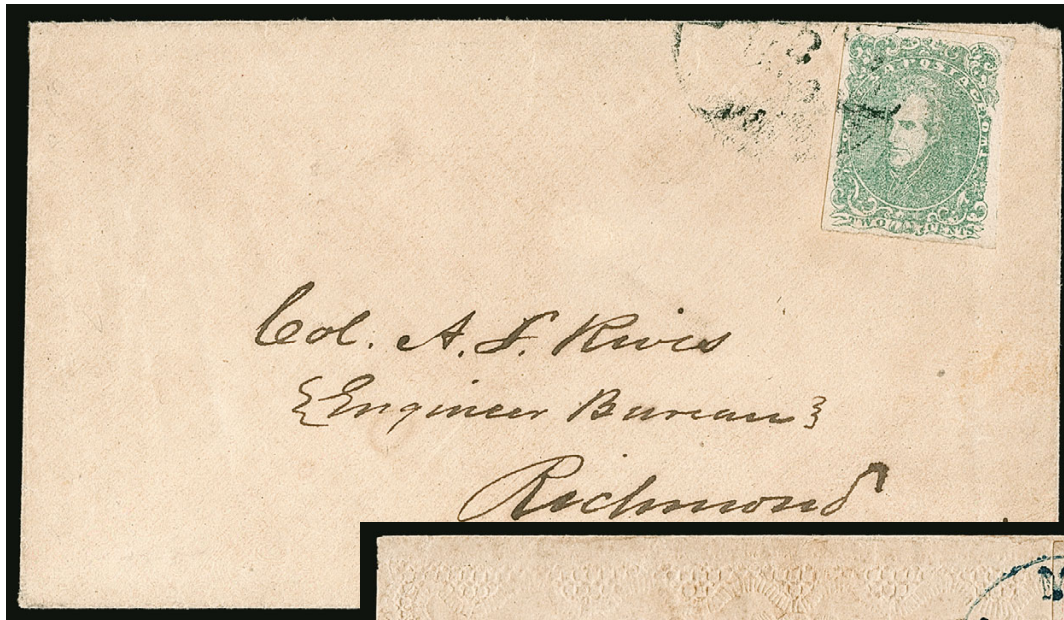 POSTAGE
TWO CENTS
Col. A. L. Rives
{Engineer Bureau}
Richmond